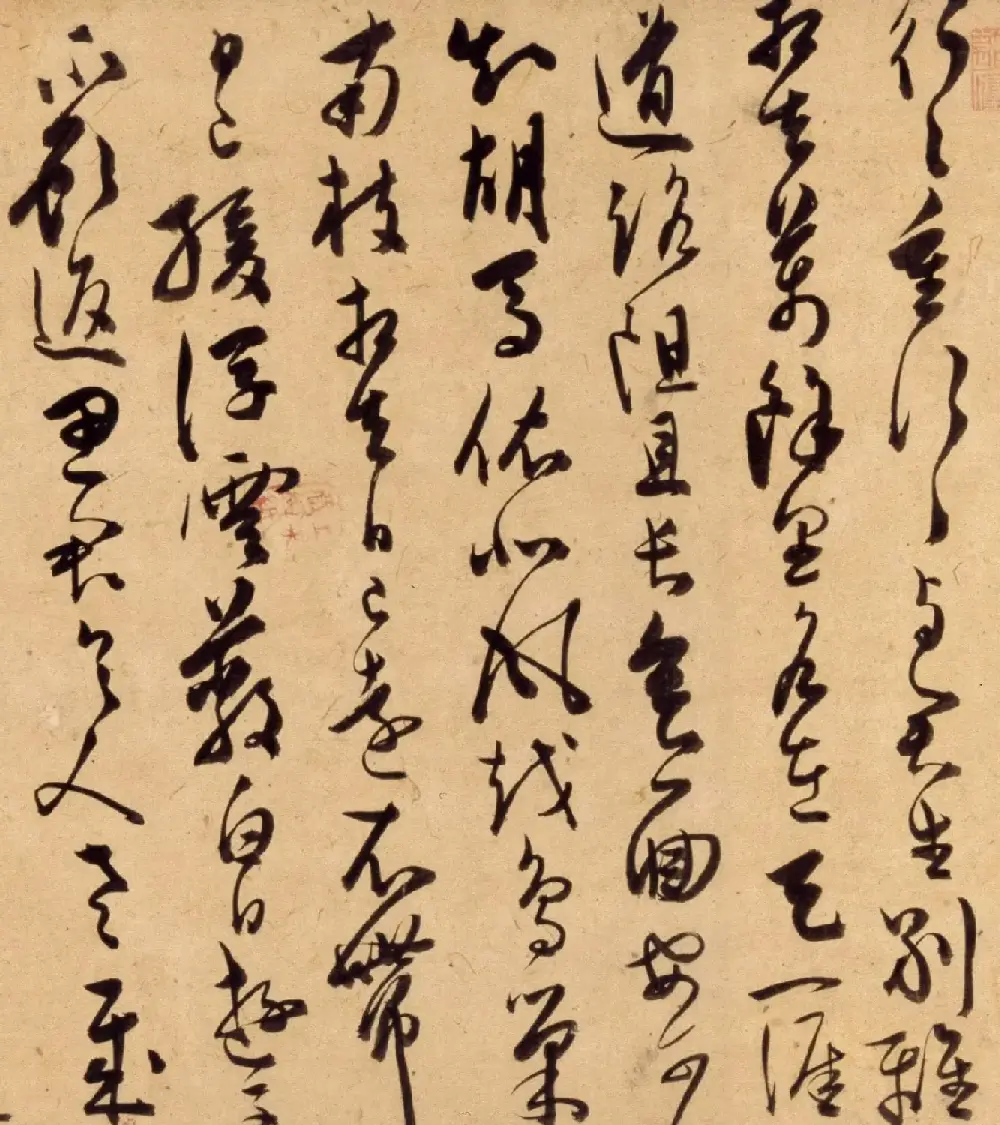 行々重行々与君生別離
相去万餘里各在天一涯
道路阻且長會面安可
知胡馬依北風越鳥巢
南枝相去日已遠衣帶
日已緩浮雲蔽白日遊子
不顧返思君令人老歲